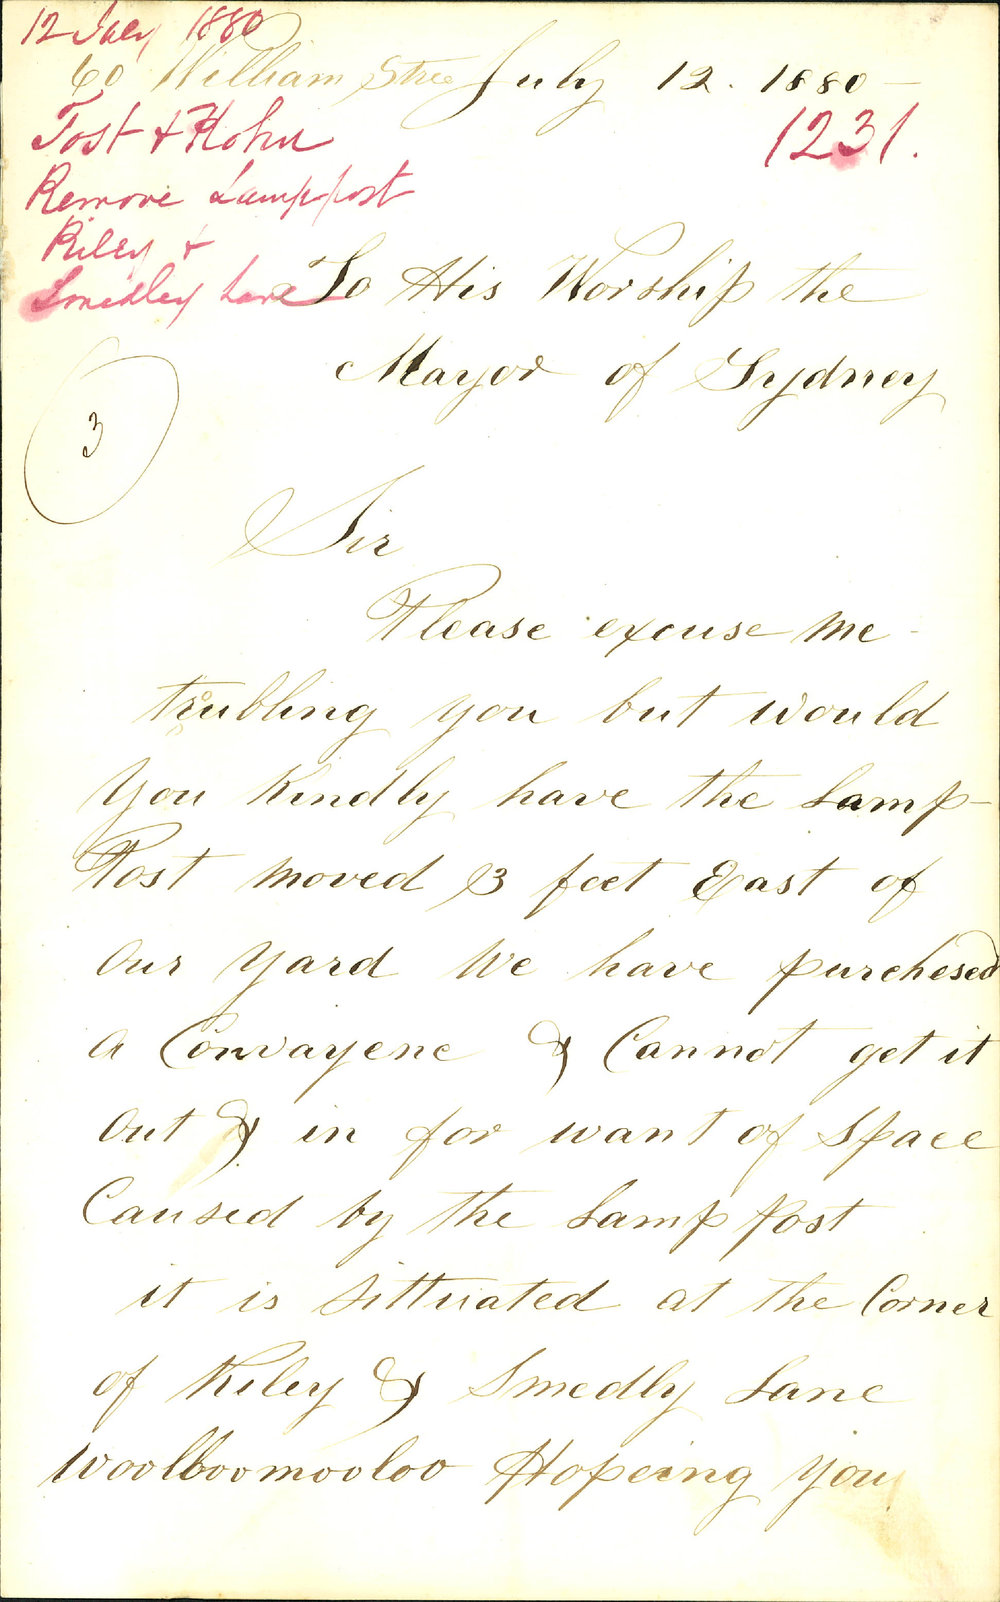 12 July 1880
60 William Stree July 12. 1880 –
Tost & Rohu
1231.
Remove Lamp post
Riley &
Smedley Lane
To His Worship the
Mayor of Sydney
3
Sir
Please excuse me
trubling you but would
you kindly have the Lamp-
Post moved 3 feet East of
our yard We have purchesed
a Convayene & Cannot get it
out & in for want of space
Caused by the Lamp post
it is sittuated at the Corner
of Riley & Smedly Lane
Woolboomooloo Hopeing you